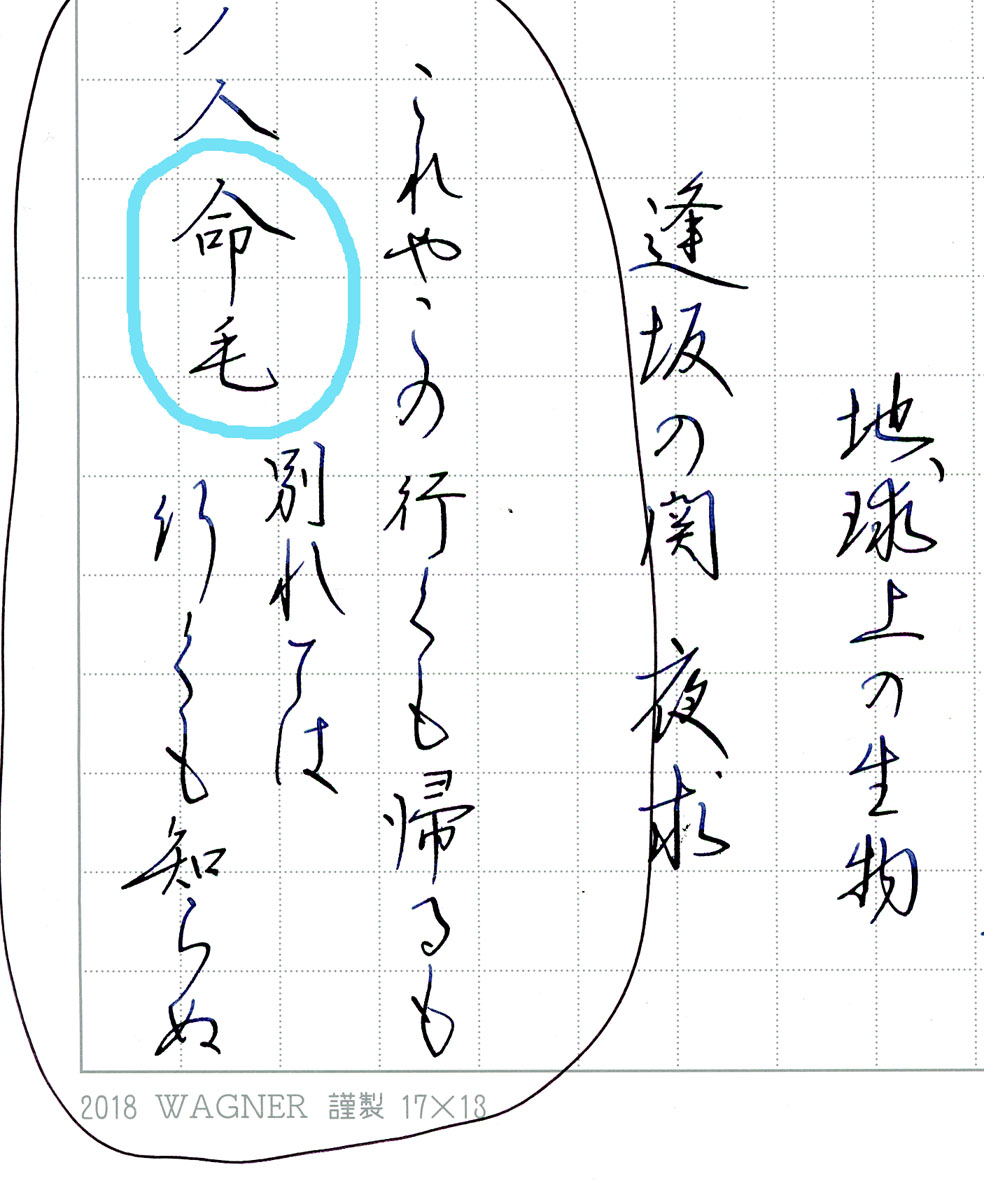 地球上の生物
逢坂の関 夜求
これやこの行くも帰るも
別れては
ノ人命毛
行くも知らぬ
2018 WAGNER 謹製 17×13